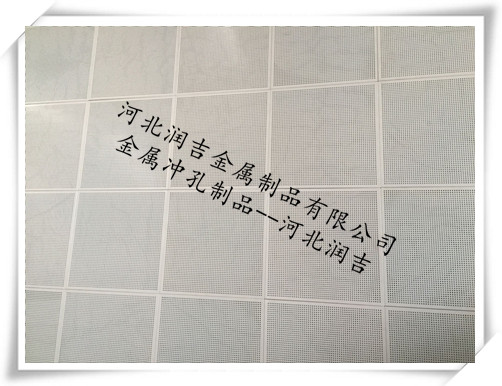 河北润吉金属制品有限公司
金属冲孔制品--河北润吉